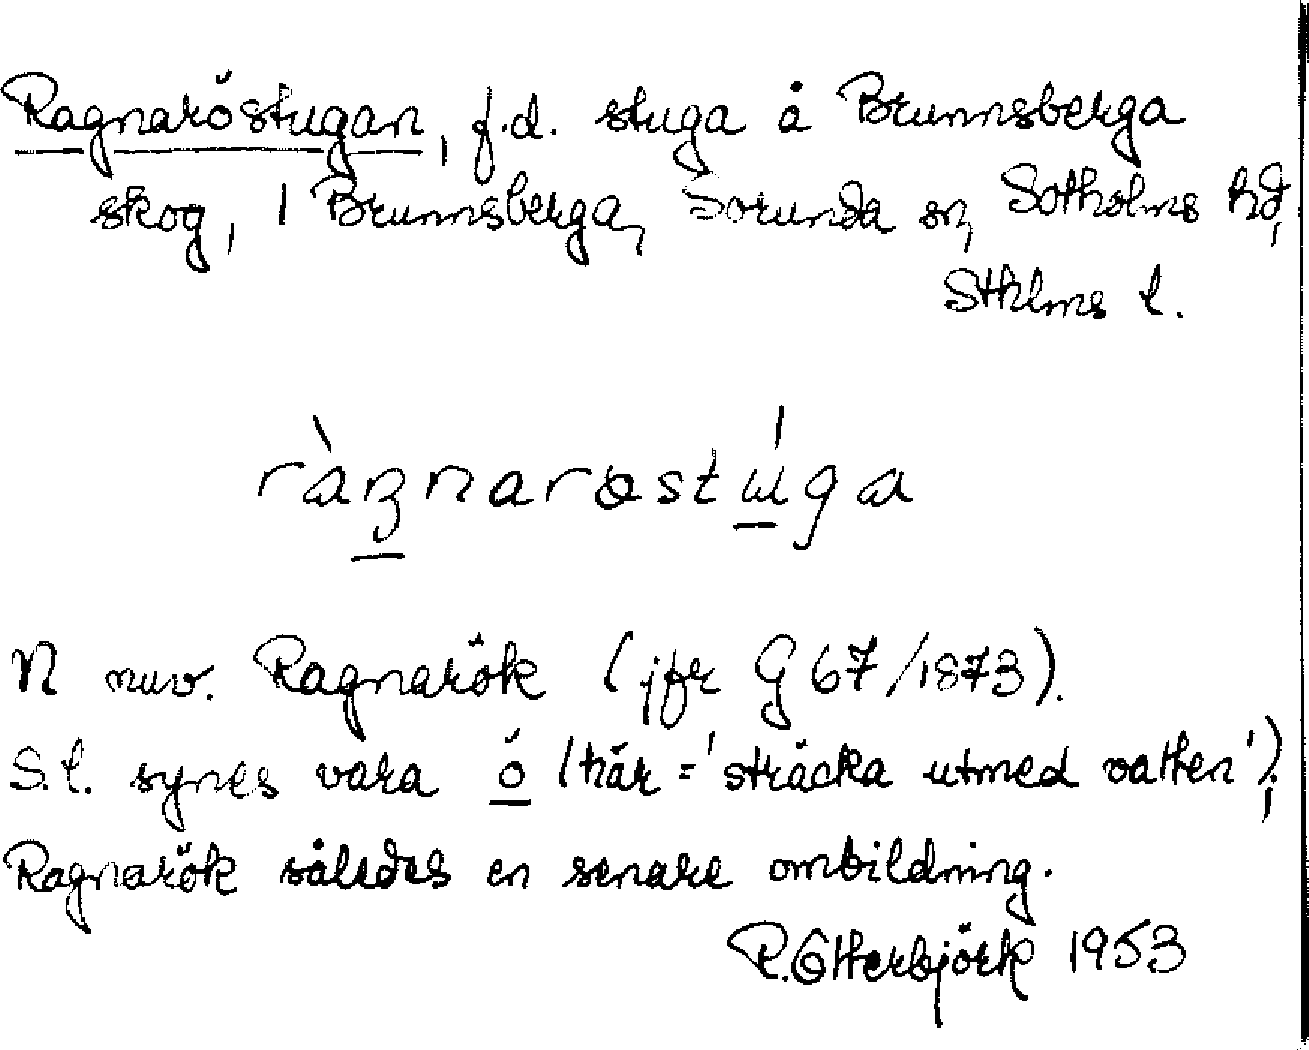 Ragnaröstugan, f.d. stuga å Brunnsberga
skog, 1 Brunnsberga, Sorunda sn, Sotholms hd,
Sthlms l.
ràꜧnarɷstɯ́ga
N nuv. Ragnarök (jfr G 67/1873).
S.l. synes vara ö (här = 'sträcka utmed vatten'),
Ragnarök således en senare ombildning.
R. Otterbjörk 1953